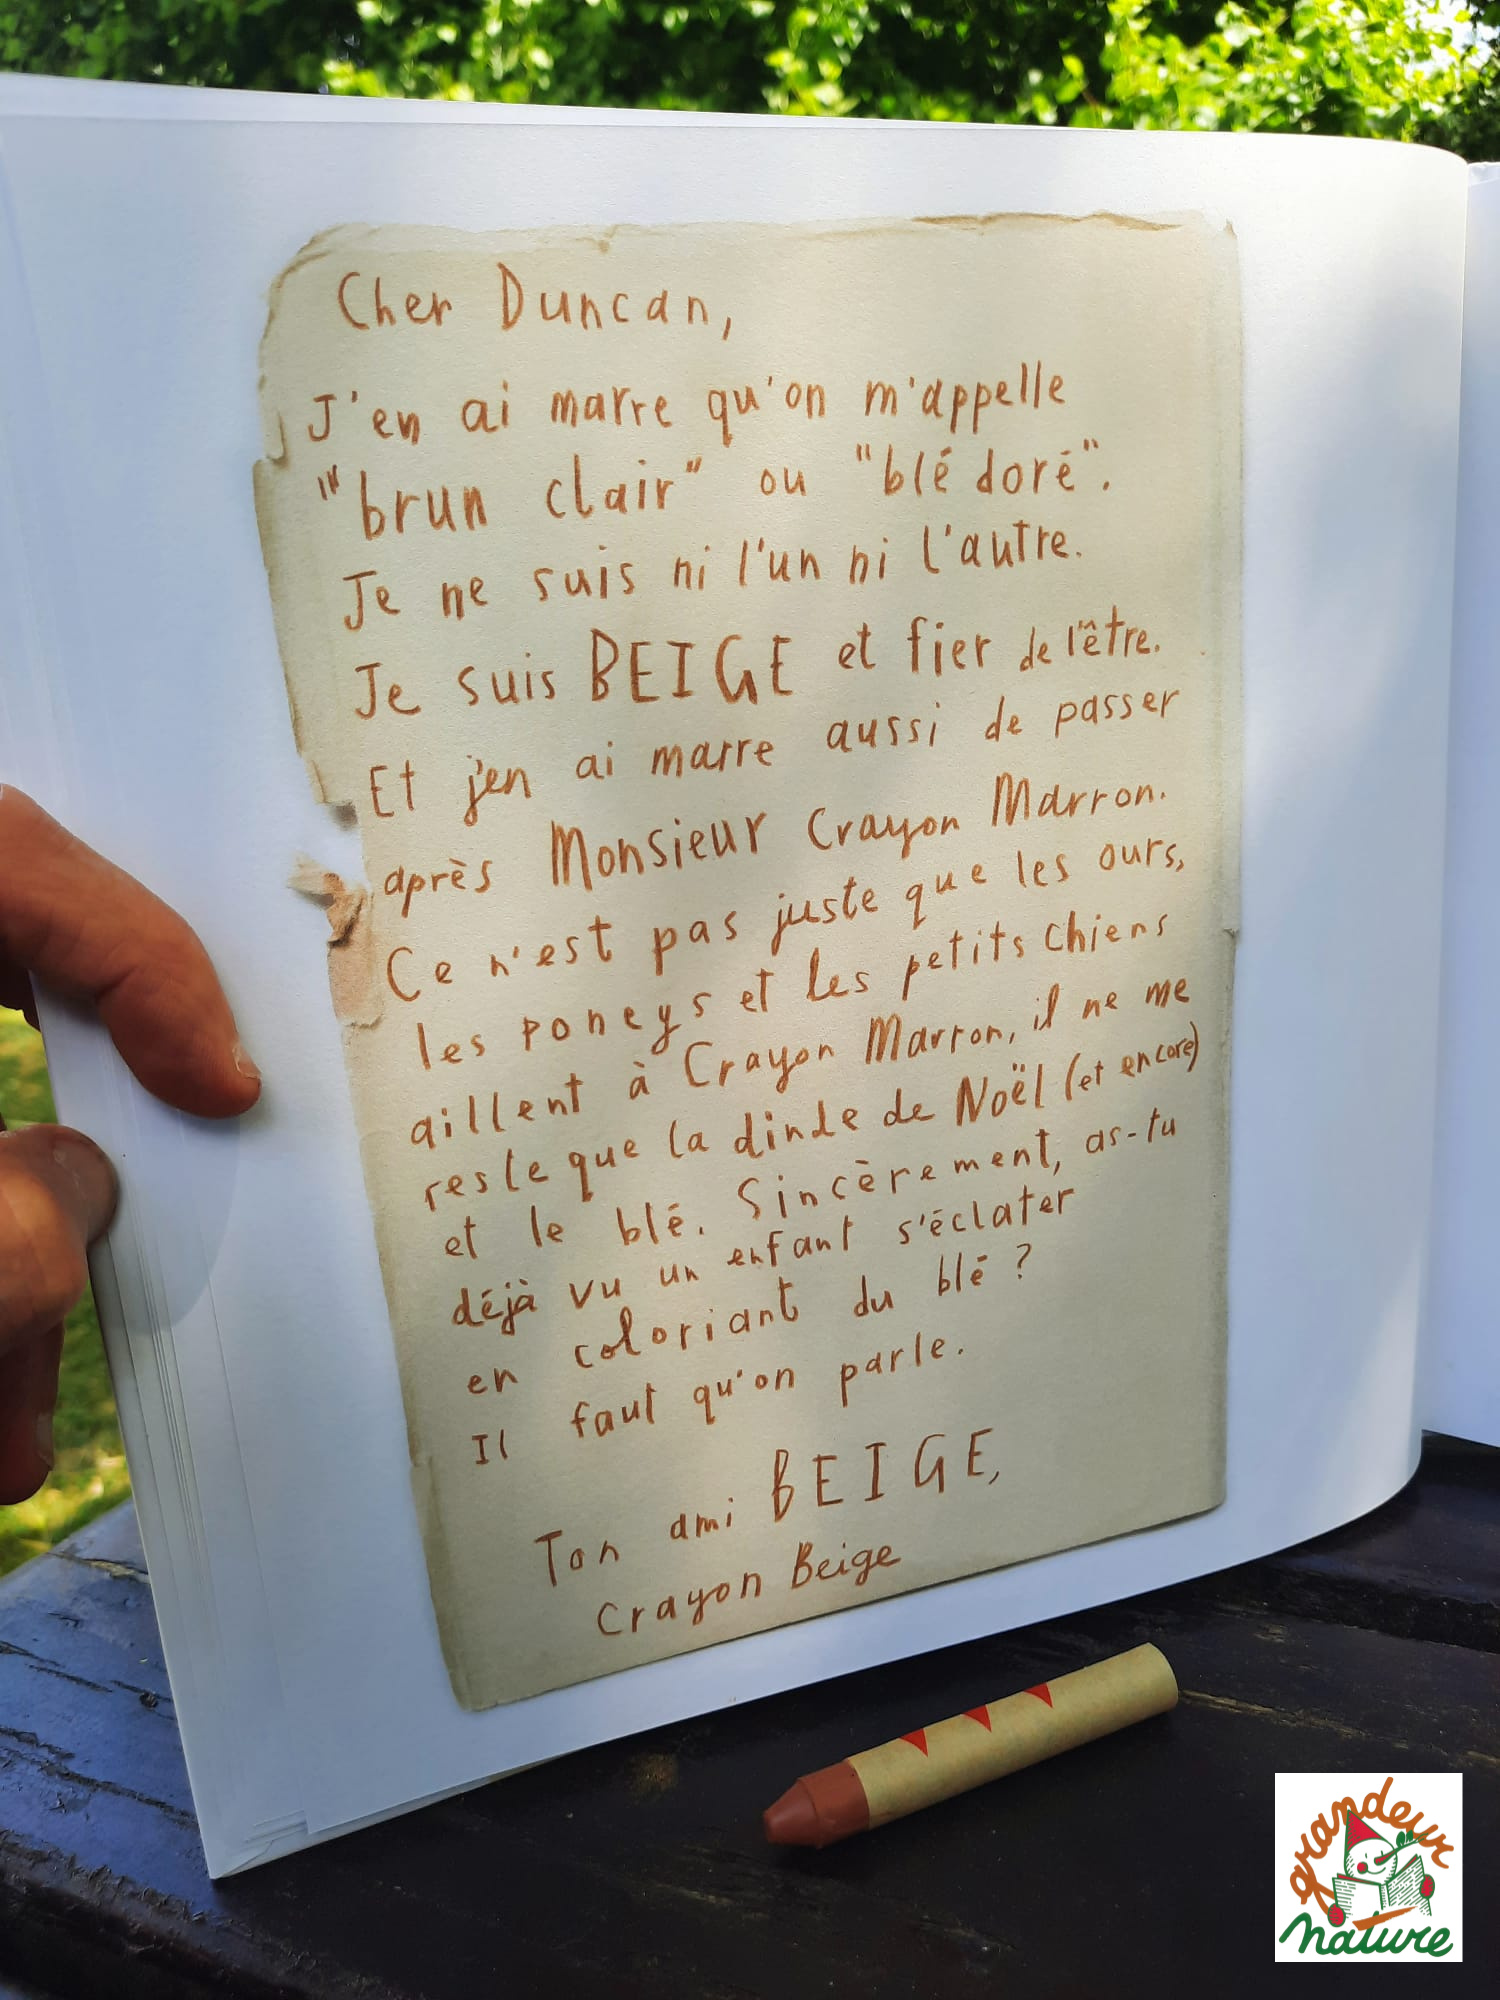 Cher Duncan,
J'en ai marre qu'on m'appelle
"brun clair" ou "blé doré".
Je ne suis ni l'un ni l'autre.
Je suis BEIGE et fier de l'être.
Et j'en ai marre aussi de passer
après Monsieur Crayon Marron.
Ce n'est pas juste que les ours,
les poneys et les petits chiens
aillent à Crayon Marron, il ne me
reste que la dinde de Noël (et encore)
et le blé. Sincèrement, as-tu
déjà vu un enfant s'éclater
en coloriant du blé ?
Il faut qu'on parle.
Ton ami BEIGE,
Crayon Beige
grandeur
nature